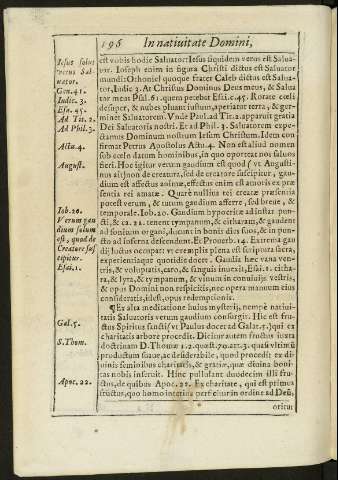 196 In natiuitate Domini,
Iesus solus
verus Sal-
uator.
Gen. 41.
Iudic. 3.
Esa. 45.
Ad Tit. 2.
Ad Phil. 3.
Actu. 4.
August.
Iob. 20.
Verum gau
dium solum
est, quod de
Creatore sus
cipitur.
Esai. 1.
Gal. 5.
S. Thom.
Apoc. 22.
est vobis hodie Saluator: Iesus siquidem verus est Salua-
tor. Ioseph enim in figura Christi dictus est Saluator
mundi: Othoniel quoque frater Caleb dictus est Salua-
tor, Iudic. 3. At Christus Dominus Deus meus, & Salua
tor meus Psal. 61. quem petebat Esai. c. 45. Rorate cœli
desuper, & nubes pluant iustum, aperiatur terra, & ger-
minet Saluatorem. Vnde Paul. ad Tit. 2. apparuit gratia
Dei Saluatoris nostri. Et ad Phil. 3. Saluatorem expe-
ctamus Dominum nostrum Iesum Christum. Idem con
firmat Petrus Apostolus Actu. 4. Non est aliud nomen
sub cœlo datum hominibus, in quo oporteat nos saluos
fieri. Hoc igitur verum gaudium est quod (vt Augusti-
nus ait) non de creatura, sed de creatore suscipitur, gau-
dium est affectus animæ, effectus enim est amoris ex præ
sentia rei amatæ. Quare nullius rei creatæ præsentia
potest verum, & tutum gaudium afferre, sed breue, &
temporale. Iob. 20. Gaudium hypocritæ ad instar pun-
cti, & ca. 21. tenent tympanum, & citharam, & gaudent
ad sonitum organi, lucunt in bonis dies suos, & in pun-
cto ad inferna descendunt. Et Prouerb. 14. Extrema gau
dij luctus occupat: vt exemplis plena est scriptura sacra,
experientiaque quotidie docet. Gaudia hæc vana ven-
tris, & voluptatis, caro, & sanguis inuexit, Esai. 5. citha-
ra, & lyra, & tympanum, & vinum in conuiuijs vestris,
& opus Domini non respicitis, nec opera manuum eius
consideratis, id est, opus redemptionis.
¶ Ex alta meditatione huius mysterij, nempè natiui-
tatis Saluatoris verum gaudium consurgit: Hic est fru-
ctus Spiritus sancti (vt Paulus docet ad Galat. 5.) qui ex
charitatis arbore procedit. Dicitur autem fructus iuxta
doctrinam D. Thomæ 1. 2. quæst. 70. art. 3. quasi vltimũ
productum suaue, ac desiderabile, quod procedit ex di-
uinis seminibus charitatis, & gratiæ, quæ diuina boni-
tas nobis inseruit. Hinc pullulant duodecim illi fru-
ctus, de quibus Apoc. 22. Ex charitate, qui est primus
fructus, quo homo interius perficitur in ordine ad Deũ,
oritur